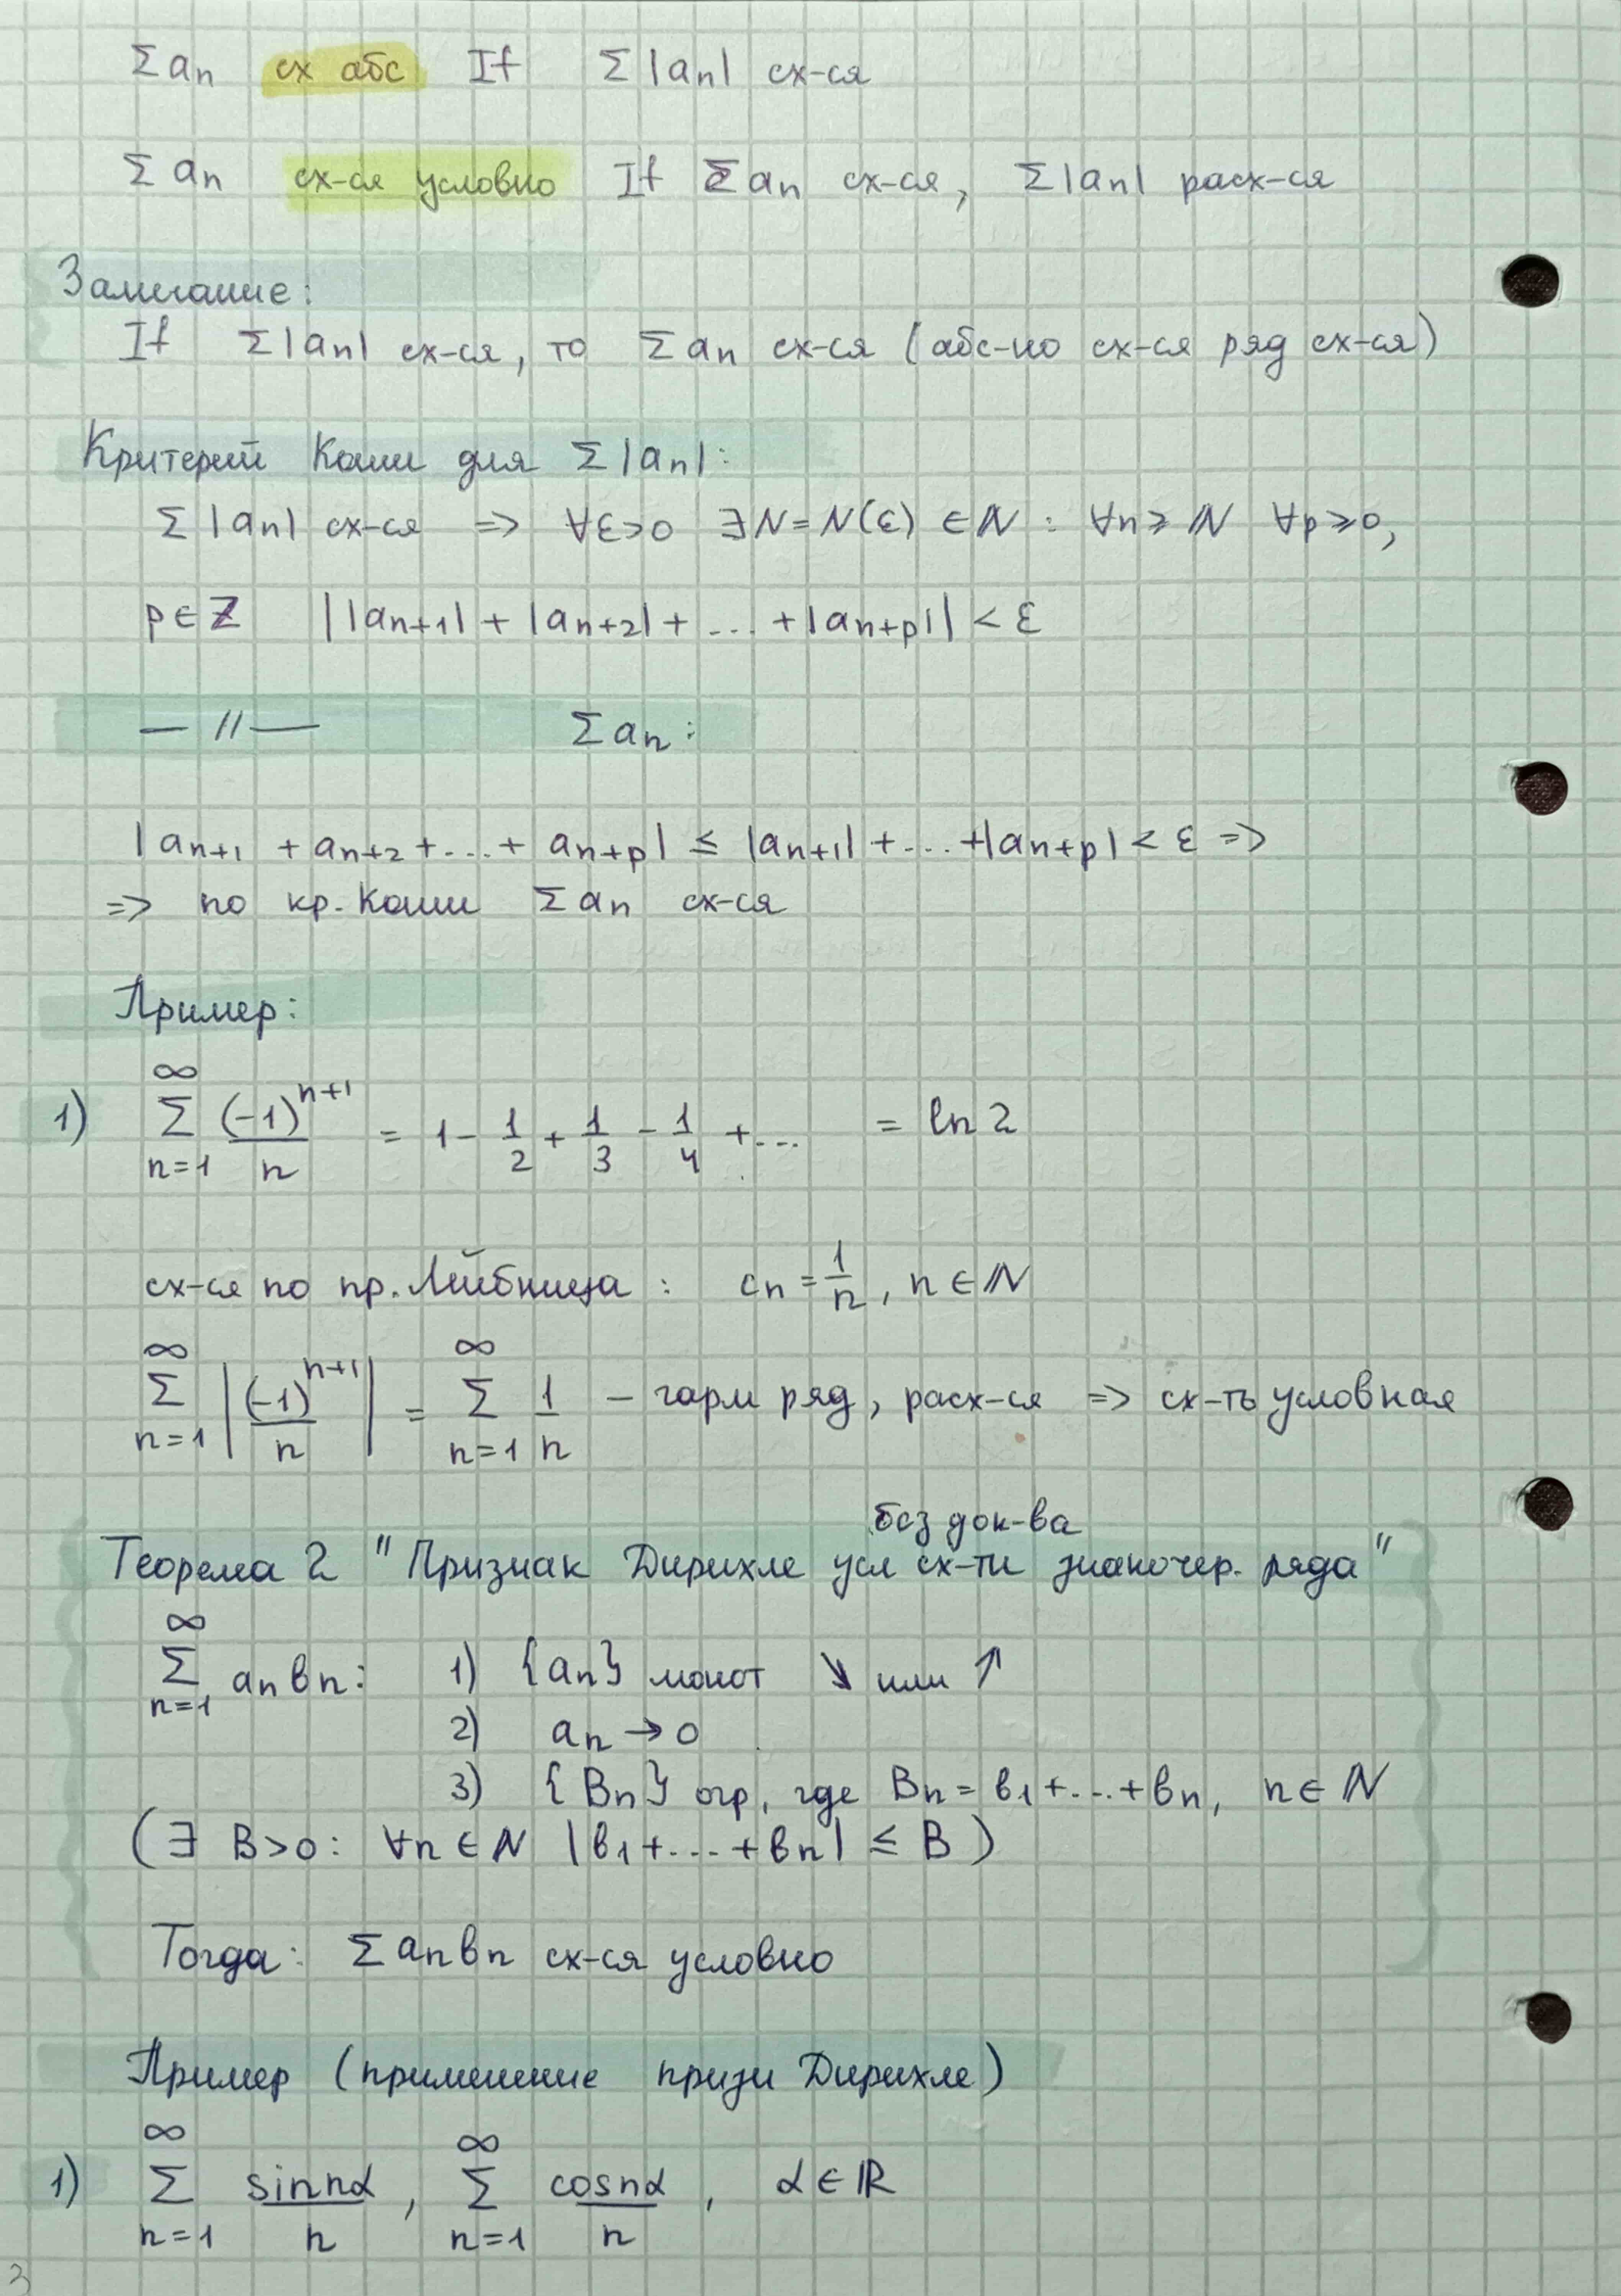 Σ aₙ сх абс If Σ |aₙ| сх-ся
Σ aₙ сх-ся условно If Σ aₙ сх-ся, Σ|aₙ| расх-ся
Замечание:
If Σ|aₙ| сх-ся, то Σ aₙ сх-ся (абс-но сх-ся ряд сх-ся)
Критерий Коши для Σ |aₙ|:
Σ |aₙ| сх-ся => ∀ε>0 ∃N=N(ε) ∈ℕ : ∀n≥ℕ ∀p≥0,
p∈ℤ ||aₙ₊₁| + |aₙ₊₂| + ... + |aₙ₊ₚ|| < ε
— // — Σ aₙ:
|aₙ₊₁ + aₙ₊₂ + ... + aₙ₊ₚ| ≤ |aₙ₊₁| + ... + |aₙ₊ₚ| < ε =>
=> по кр. Коши Σ aₙ сх-ся
Пример:
1) \sum_{n=1}^{∞} \frac{(-1)^{n+1}}{n} = 1 - \frac{1}{2} + \frac{1}{3} - \frac{1}{4} + ... = ln 2
сх-ся по пр. Лейбница : cₙ = \frac{1}{n}, n ∈ ℕ
\sum_{n=1}^{∞} |\frac{(-1)^{n+1}}{n}| = \sum_{n=1}^{∞} \frac{1}{n} – гарм ряд, расх-ся => сх-ть условная
без док-ва
Теорема 2 "Признак Дирихле усл сх-ти знакочер. ряда"
\sum_{n=1}^{∞} aₙ bₙ: 1) {aₙ} монот ↘ или ↗
2) aₙ → 0
3) {Bₙ} огр, где Bₙ = b₁+...+bₙ, n ∈ ℕ
(∃ B>0: ∀n ∈ ℕ |b₁+...+bₙ| ≤ B)
Тогда: Σ aₙbₙ сх-ся условно
Пример (применение призн Дирихле)
1) \sum_{n=1}^{∞} \frac{sin nα}{n}, \sum_{n=1}^{∞} \frac{cos nα}{n}, α ∈ ℝ
3